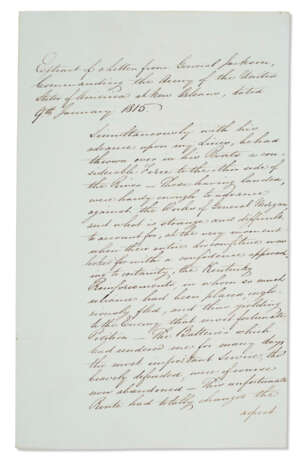 Extract of a Letter from General Jackson,
Commanding the Army of the United
States of America at New Orleans, dated
9th January 1815.
Simultaneously with his
advance upon my Lines, he had
thrown over in his Boats a con-
siderable Force to the other side of
the River — These having landed,
were hardy enough to advance
against the Works of General Morgan
and what is strange and difficult
to account for, at the very moment
when their entire discomfiture was
looked for with a confidence approach-
ing to certainty, the Kentucky
Reinforcements, in whom so much
reliance had been placed, inglo-
riously fled, and thus yielding
to the Enemy, that most fortunate
Position — The Batteries which
had rendered me for many days
the most important Service, tho
bravely defended, were of course
now abandoned — This unfortunate
Route had totally changed the
aspect